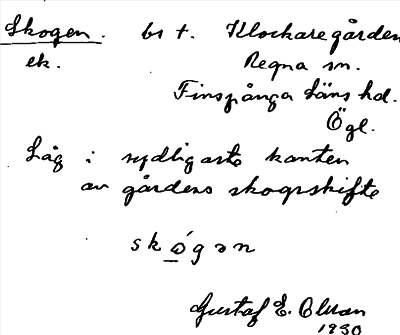 Skogen. bs t. Klockaregården
ek. Regna sn.
Finspånga Läns hd.
Ögl.
Låg i sydligaste kanten
av gårdens skogsskifte
skó̲gən
Gustaf E. Olsson
1930